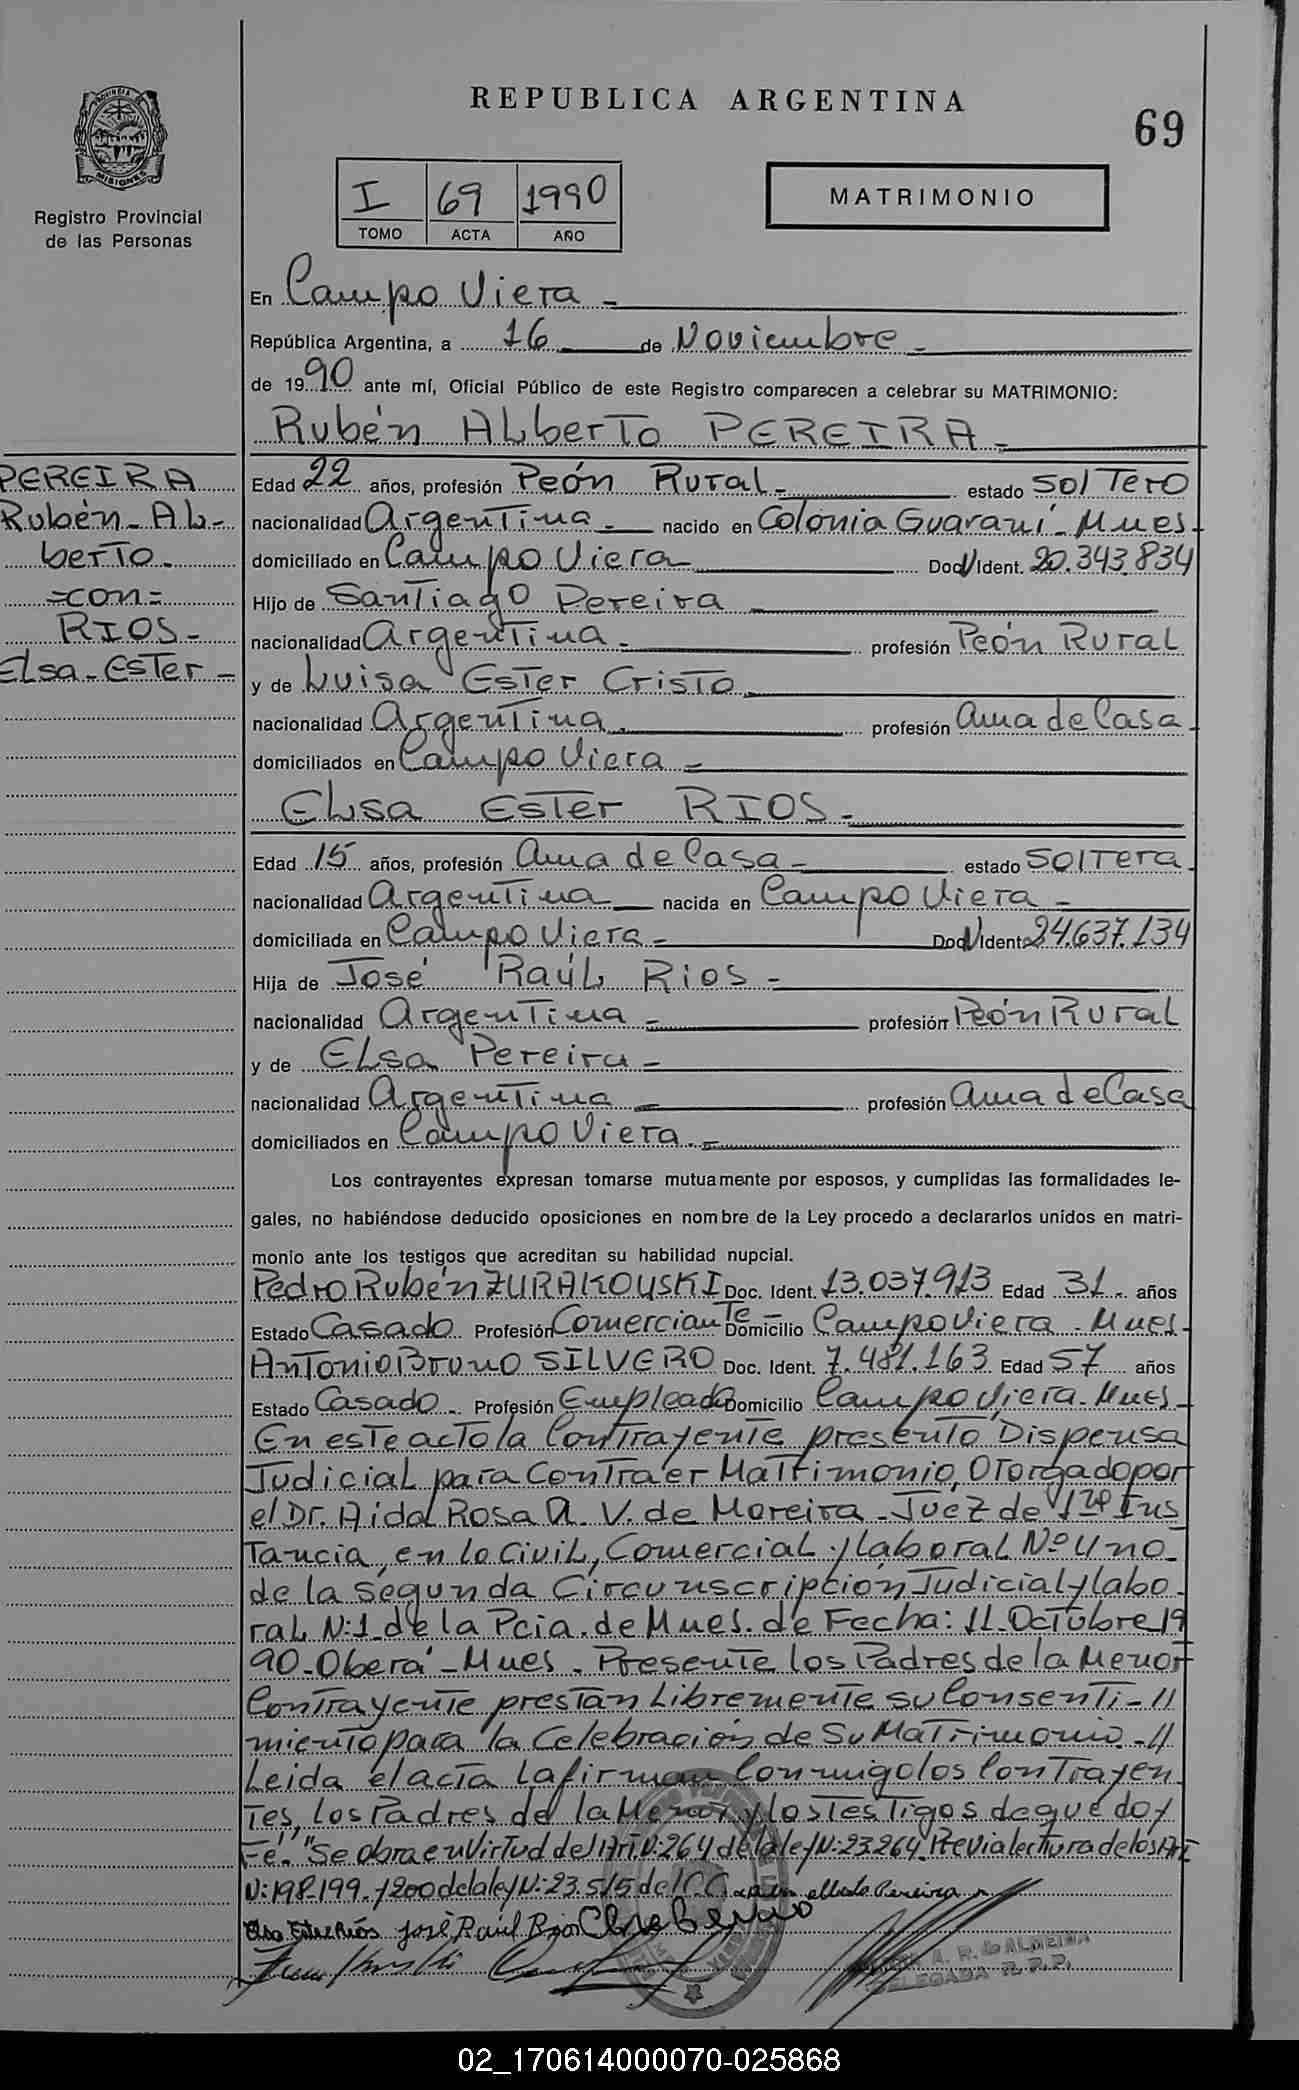 REPUBLICA ARGENTINA
69
PROVINCIA DE MISIONES
Registro Provincial
de las Personas
I 69 1990
TOMO ACTA AÑO
MATRIMONIO
En Campo Viera -
República Argentina, a 16 de Noviembre -
de 1990 ante mí, Oficial Público de este Registro comparecen a celebrar su MATRIMONIO:
Rubén ALberTo PEREIRA -
PEREIRA
Rubén - AL-
berTo -
=con=
RIOS -
ELsa - EsTer -
Edad 22 años, profesión Peón Rural - estado SolTero
nacionalidad ArgenTina - nacido en Colonia Guaraní - Mnes -
domiciliado en Campo Viera Doc. Ident. 20.343.834
Hijo de SanTiago Pereira
nacionalidad ArgenTina - profesión Peón RuraL
y de Luisa EsTer CrisTo
nacionalidad ArgenTina profesión Ama de Casa
domiciliados en Campo Viera -
ELsa EsTer RIOS -
Edad 15 años, profesión Ama de Casa - estado SolTera
nacionalidad ArgenTina nacida en Campo Viera -
domiciliada en Campo Viera - Doc. Ident. 24.637.134
Hija de José RaúL Rios -
nacionalidad ArgenTina - profesión Peón RuraL
y de ELsa Pereira -
nacionalidad ArgenTina - profesión Ama de Casa
domiciliados en Campo Viera. -
Los contrayentes expresan tomarse mutuamente por esposos, y cumplidas las formalidades le-
gales, no habiéndose deducido oposiciones en nombre de la Ley procedo a declararlos unidos en matri-
monio ante los testigos que acreditan su habilidad nupcial.
Pedro Rubén ZURAKOUSKI Doc. Ident. 13.037.913 Edad 31 - años
Estado Casado Profesión ComercianTe - Domicilio Campo Viera - Mnes -
AnTonio Bruno SILVERO Doc. Ident. 7.481.163 Edad 57 años
Estado Casado - Profesión Empleado Domicilio Campo Viera - Mnes -
En esTe acTo la ConTrayenTe presenTo Dispensa
JudiciaL para ConTraer MaTrimonio, OTorgado por
el Dr. Aida Rosa A. V. de Moreira - Juez de 1ra Ins
Tancia, en lo CiviL, ComerciaL y laboraL Nº Uno
de la segunda Circunscripción Judicial y labo-
raL N:1 de la Pcia. de Mnes. de Fecha: 11 - OcTubre 19
90 - Oberá - Mnes - PresenTe los Padres de la Menor
ConTrayenTe presTan LibremenTe su ConsenTi - //
mienTo para la Celebración de Su MaTrimonio - //
Leida el acTa La firman Conmigo los ConTrayen
Tes, los Padres de la Menor y los TesTigos de que doy
Fé. "Se obra en VirTud del ArT. N:264 de la ley N:23.264. Previa lectura de los Art
N:198-199 - y 200 de la ley N:23.515 del C.C. Alberto Pereira
Elsa Ester Rios José Raul Rios
A. R. de ALMEIDA
DELEGADA R.P.P.
02_170614000070-025868